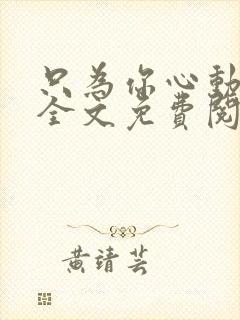 只為你心動
全文免費閱
黃靖芸